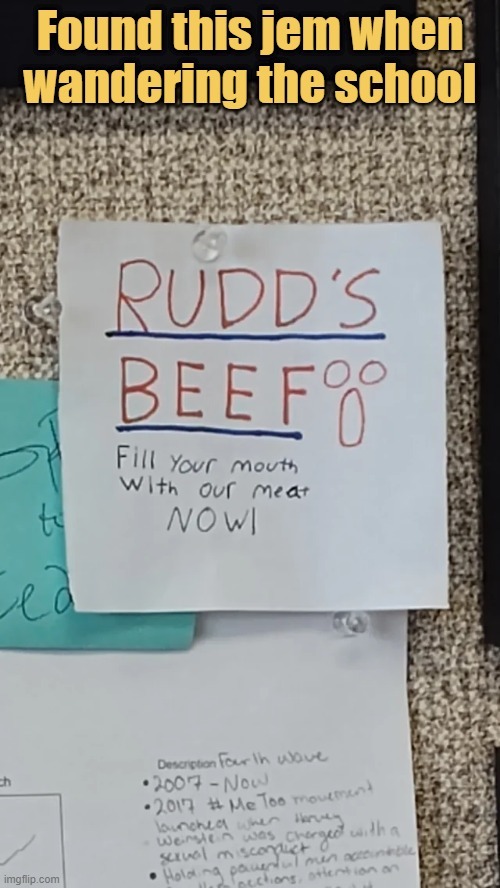 Found this jem when
wandering the school
RUDD'S
BEEF
Fill your mouth
with our meat
NOW!
ch
Description Fourth wave
• 2007 - Now
• 2017 # Me Too movement
launched when Harvey
Weinstein was charged with a
sexual misconduct
• Holding powerful men accountable
actions, attention on
imgflip.com